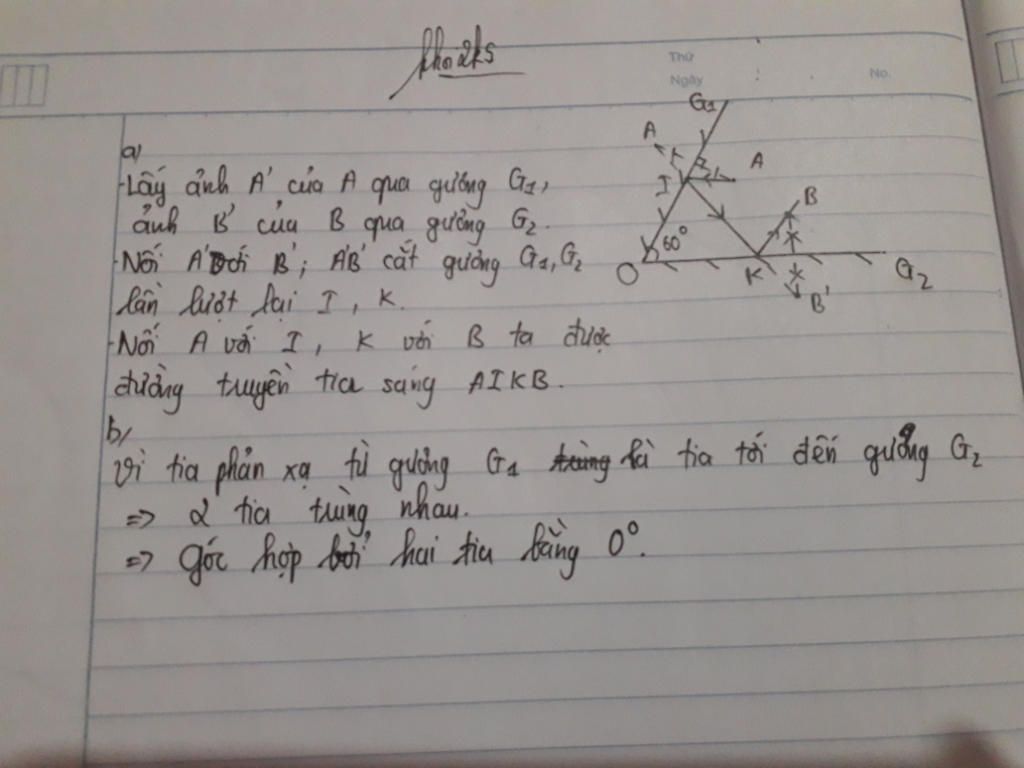 khoi2k5
Thứ
Ngày
No.
G1
A
A
I
B
60°
O
K
G2
B'
a)
-Lấy ảnh A' của A qua gương G1,
ảnh B' của B qua gương G2.
-Nối A' với B'; A'B' cắt gương G1, G2
lần lượt tại I, K.
-Nối A với I, K với B ta được
đường truyền tia sáng AIKB.
b/
Vì tia phản xạ từ gương G1 trùng là tia tới đến gương G2
=> 2 tia trùng nhau.
=> góc hợp bởi hai tia bằng 0°.